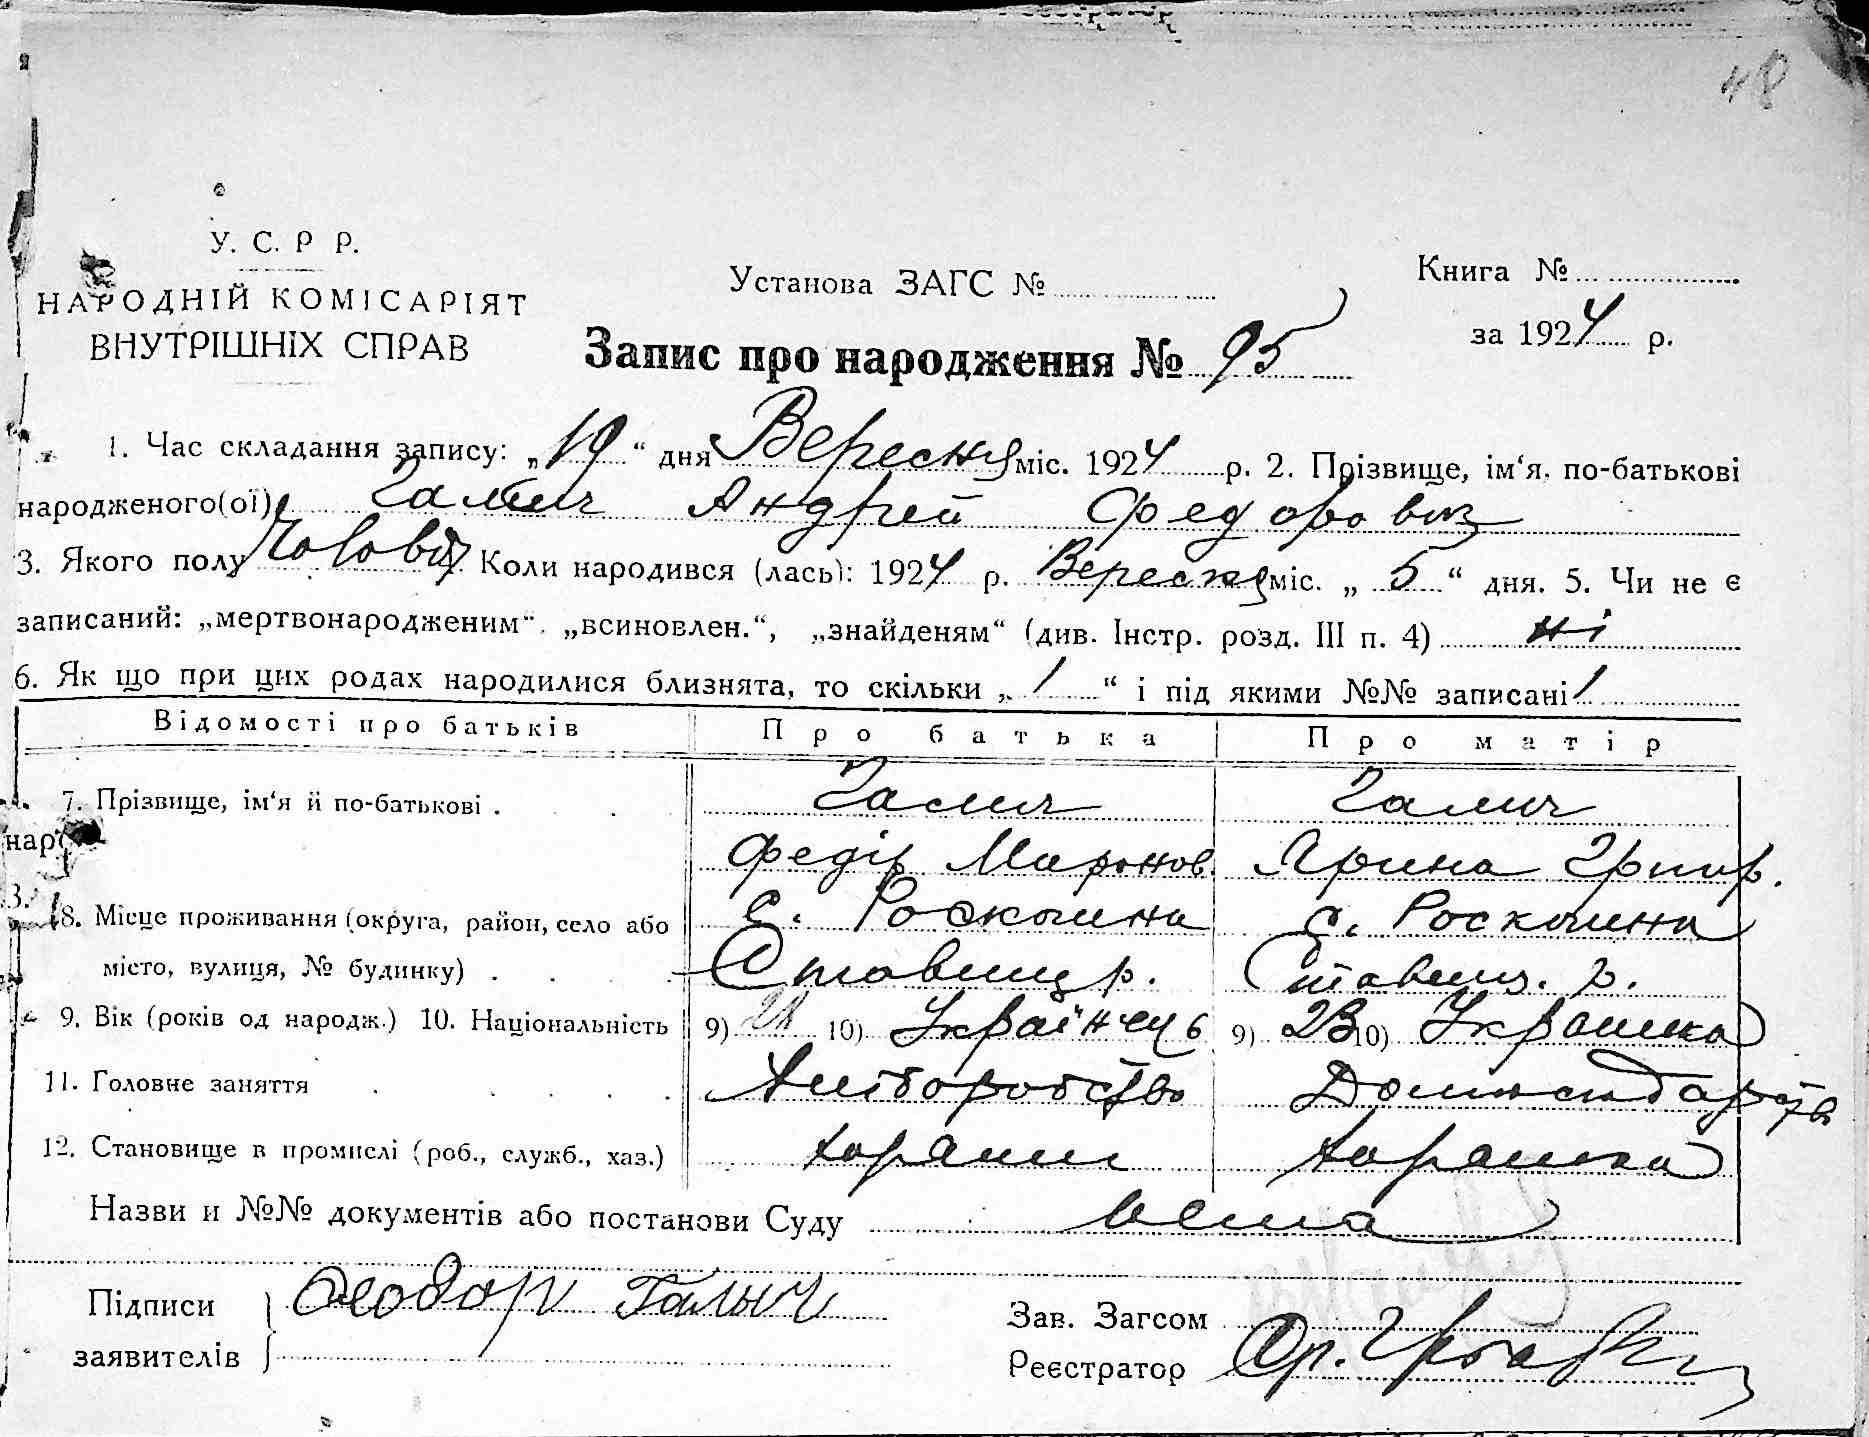 48
У. С. Р Р.
НАРОДНІЙ КОМІСАРІЯТ
ВНУТРІШНІХ СПРАВ
Установа ЗАГС №
Книга №
за 1924 р.
Запис про народження № 95
1. Час складання запису: „19“ дня Вересня міс. 1924 р. 2. Прізвище, ім‘я, по-батькові
народженого(ої) Галич Андрей Федорович
3. Якого полу Чолові Коли народився (лась): 1924 р. Вересня міс. „ 5 “ дня. 5. Чи не є
записаний: „мертвонародженим“, „всиновлен.“, „знайденям“ (див. Інстр. розд. III п. 4) ні
6. Як що при цих родах народилися близнята, то скільки „ / “ і під якими №№ записані /
Відомості про батьків Про батька Про матір
7. Прізвище, ім‘я й по-батькові . Галич Галич
нар
Федір Миронов. Ярина Григ.
3.
8. Місце проживання (округа, район, село або с. Роскошна с. Роскошна
місто, вулиця, № будинку) . Ставищ р. Ставищ. р.
9. Вік (років од народж.) 10. Національність 9) 21 10) Українець 9) 23 10) Українка
11. Головне заняття Хліборобство
12. Становище в промислі (роб., служб., хаз.) хазяин хазяйка
Назви и №№ документів або постанови Суду
Підписи Феодор Галыч
заявителів
Зав. Загсом
Реєстратор